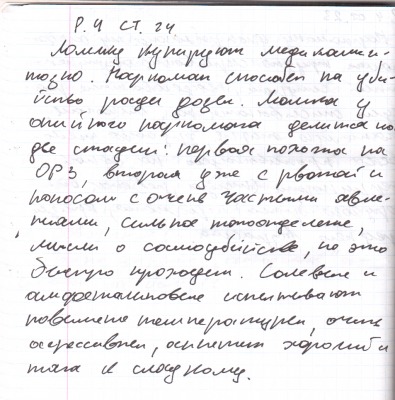 Р. 4 СТ. 24
Ломку купируют медикамен-
тозно. Наркоман способен на уби-
йство ради дозы. Ломка у
опийного наркомана делится на
две стадии: первая похожа на
ОРЗ, вторая уже с рвотой и
поносом с очень частыми явле-
ниями, сильное потоотделение,
мысли о самоубийстве, но это
быстро проходит. Солевые и
амфетаминовые испытывают
повышение температуры, очень
агрессивны, аппетит хороший и
тяга к сладкому.